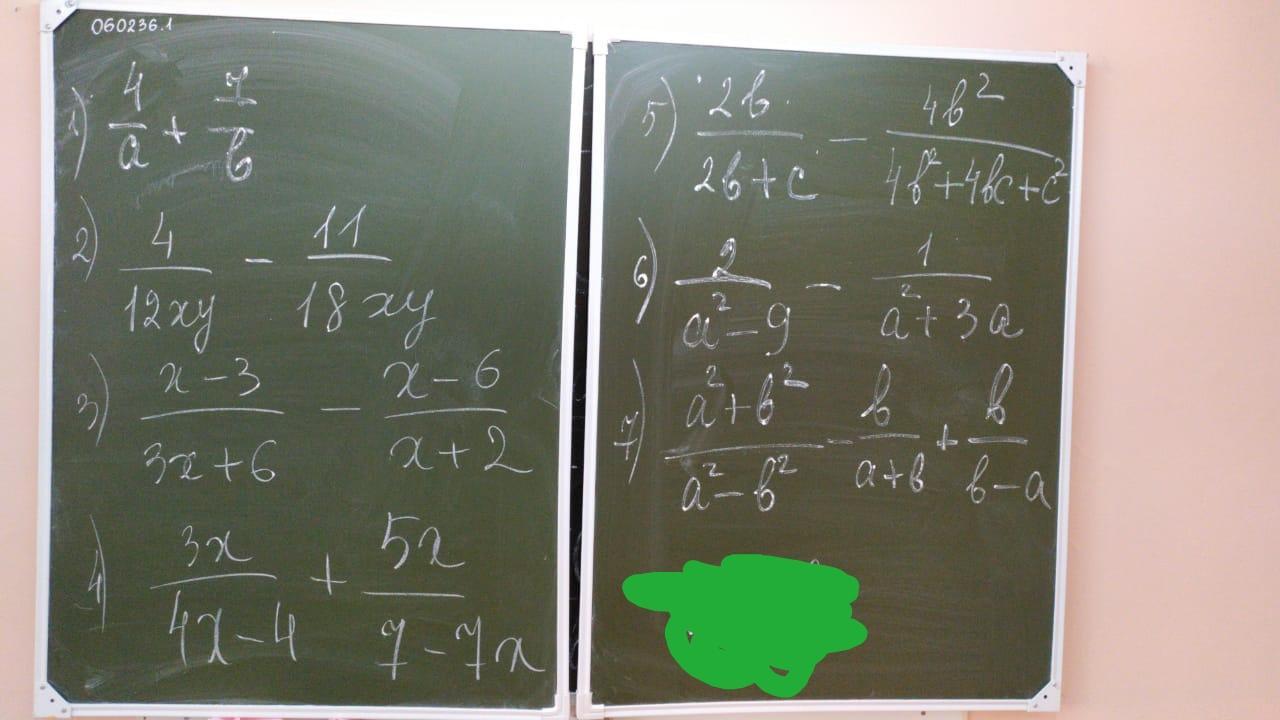 060236.1
1) 4/a + 7/b
2) 4/12xy - 11/18xy
3) x-3/3x+6 - x-6/x+2
4) 3x/4x-4 + 5x/7-7x
5) 2b/2b+c - 4b²/4b²+4bc+c²
6) 2/a²-9 - 1/a²+3a
7) a²+b²/a²-b² - b/a+b + b/b-a